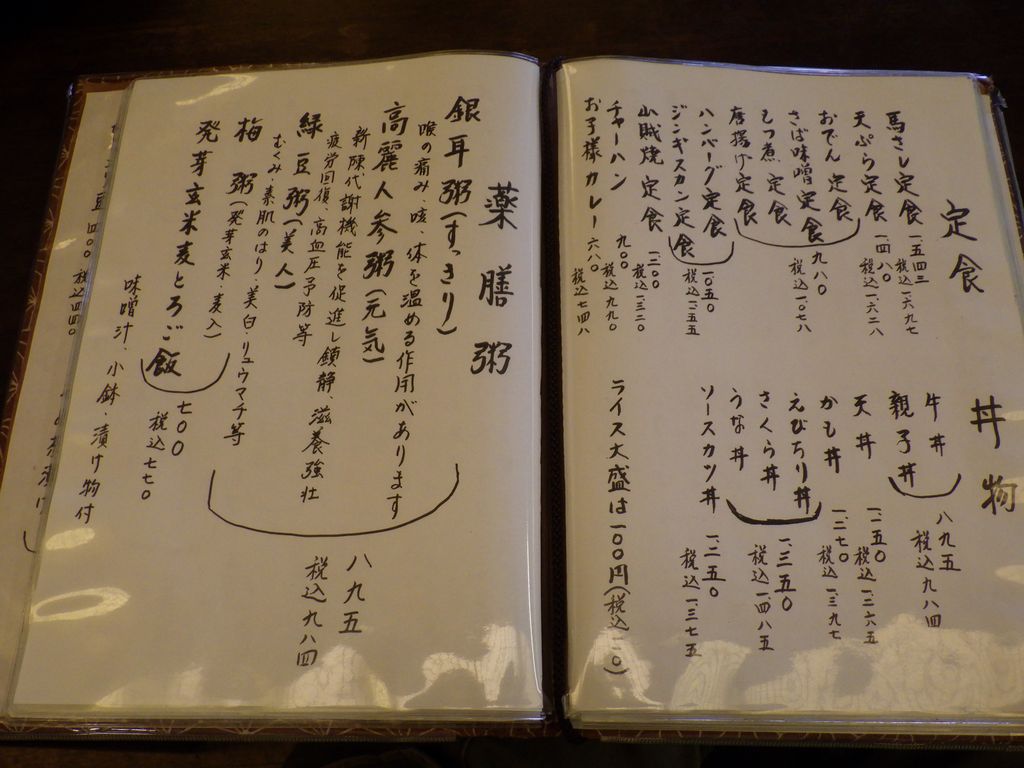 定食
馬さし定食 一、五四三
税込一、六九七
天ぷら定食 一、四八〇
税込一、六二八
おでん定食
さば味噌定食
もつ煮定食
唐揚げ定食
九八〇
税込一、〇七八
ハンバーグ定食
ジンギスカン定食
一、〇五〇
税込一、一五五
山賊焼定食 一、二〇〇
税込一、三二〇
チャーハン 九〇〇
税込九九〇
お子様カレー 六八〇
税込七四八
丼物
牛丼
親子丼
八九五
税込九八四
天丼 一、一五〇
税込一、二六五
かも丼 一、二七〇
税込一、三九七
えびちり丼
さくら丼
うな丼
一、三五〇
税込一、四八五
ソースカツ丼 一、二五〇
税込一、三七五
ライス大盛は一〇〇円(税込一一〇)
薬膳粥
銀耳粥(すっきり)
喉の痛み、咳、体を温める作用があります
高麗人参粥(元気)
新陳代謝機能を促進し鎮静、滋養強壮
疲労回復、高血圧予防等
緑豆粥(美人)
むくみ・素肌のはり・美白・リュウマチ等
八九五
税込九八四
梅粥(発芽玄米・麦入)
発芽玄米麦とろご飯
七〇〇
税込七七〇
味噌汁・小鉢・漬け物付
豆 四〇〇 税込四四〇